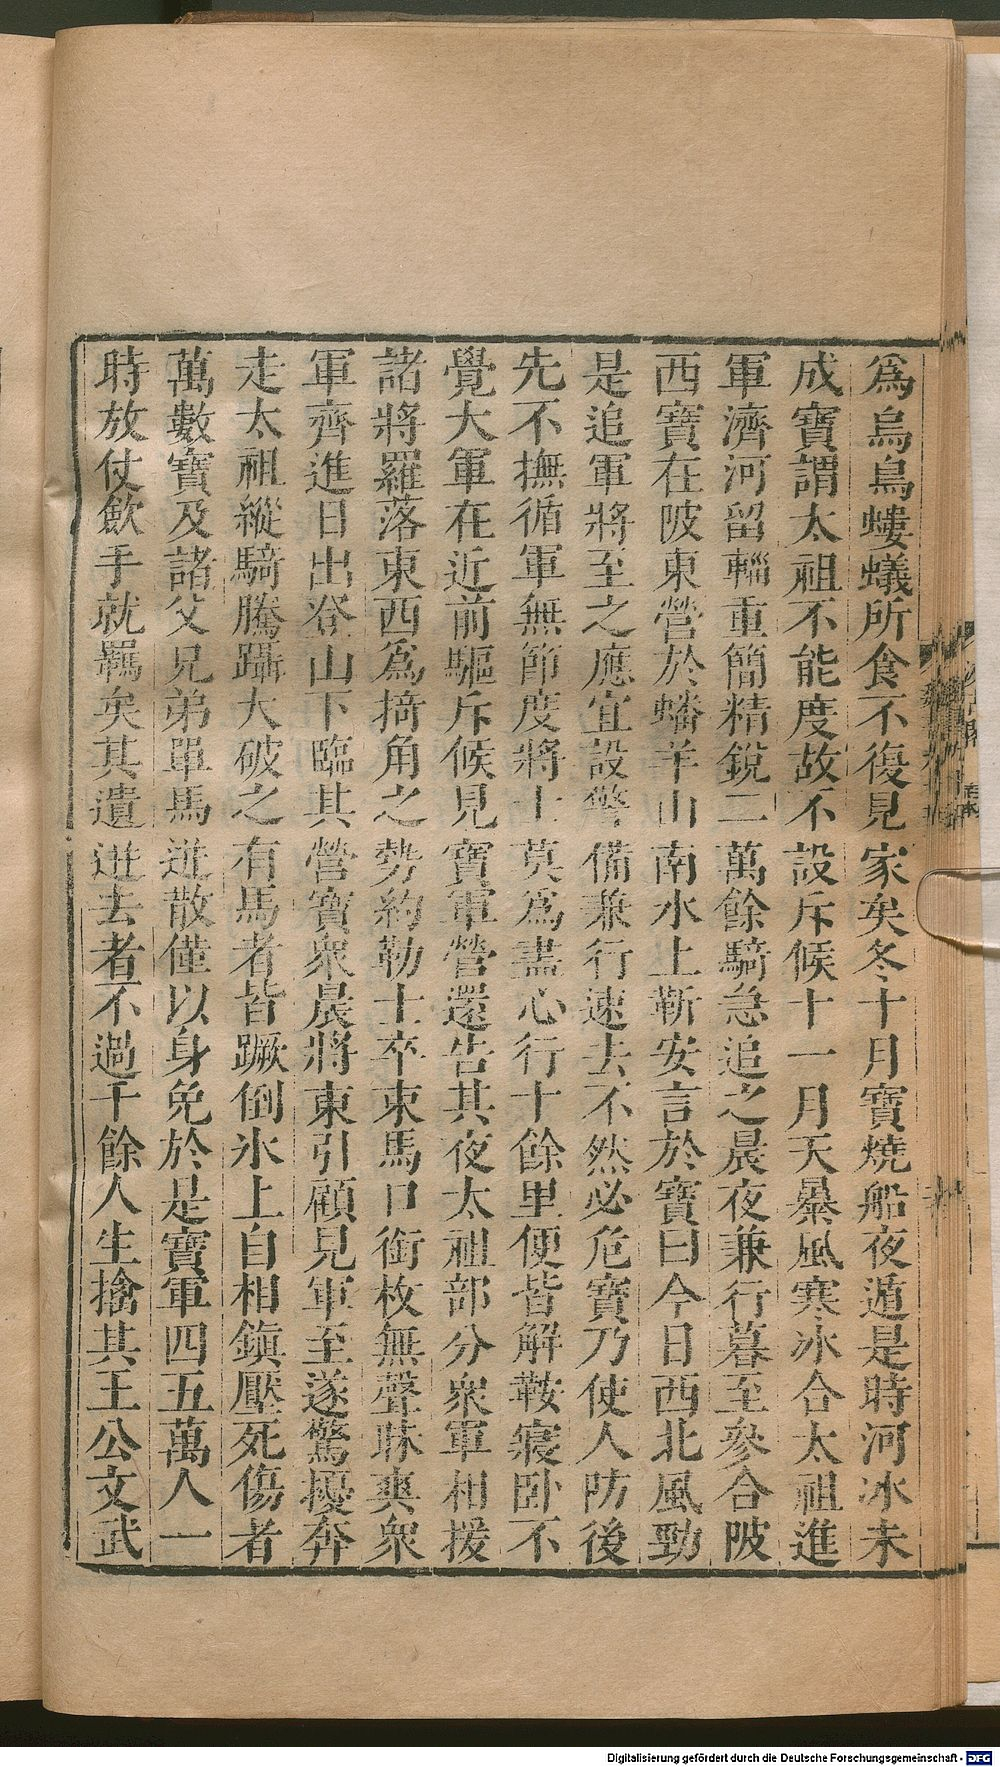 為烏鳥螻蟻所食不復見家矣冬十月寶燒船夜遁是時河冰未
成寶謂太祖不能度故不設斥候十一月天暴風寒冰合太祖進
軍濟河留輜重簡精銳二萬餘騎急追之晨夜兼行暮至參合陂
西寶在陂東營於蟠羊山南水上靳安言於寶曰今日西北風勁
是追軍將至之應宜設警備兼行速去不然必危寶乃使人防後
先不撫循軍無節度將士莫為盡心行十餘里便皆解鞍寢臥不
覺大軍在近前驅斥候見寶軍營還告其夜太祖部分衆軍相援
諸將羅落東西為掎角之勢約勒士卒束馬口銜枚無聲昧爽衆
軍齊進日出登山下臨其營寶衆晨將東引顧見軍至遂驚擾奔
走太祖縱騎騰躡大破之有馬者皆蹶倒冰上自相鎮壓死傷者
萬數寶及諸父兄弟單馬迸散僅以身免於是寶軍四五萬人一
時放仗歛手就羈矣其遺迸去者不過千餘人生擒其王公文武
Digitalisierung gefördert durch die Deutsche Forschungsgemeinschaft - DFG